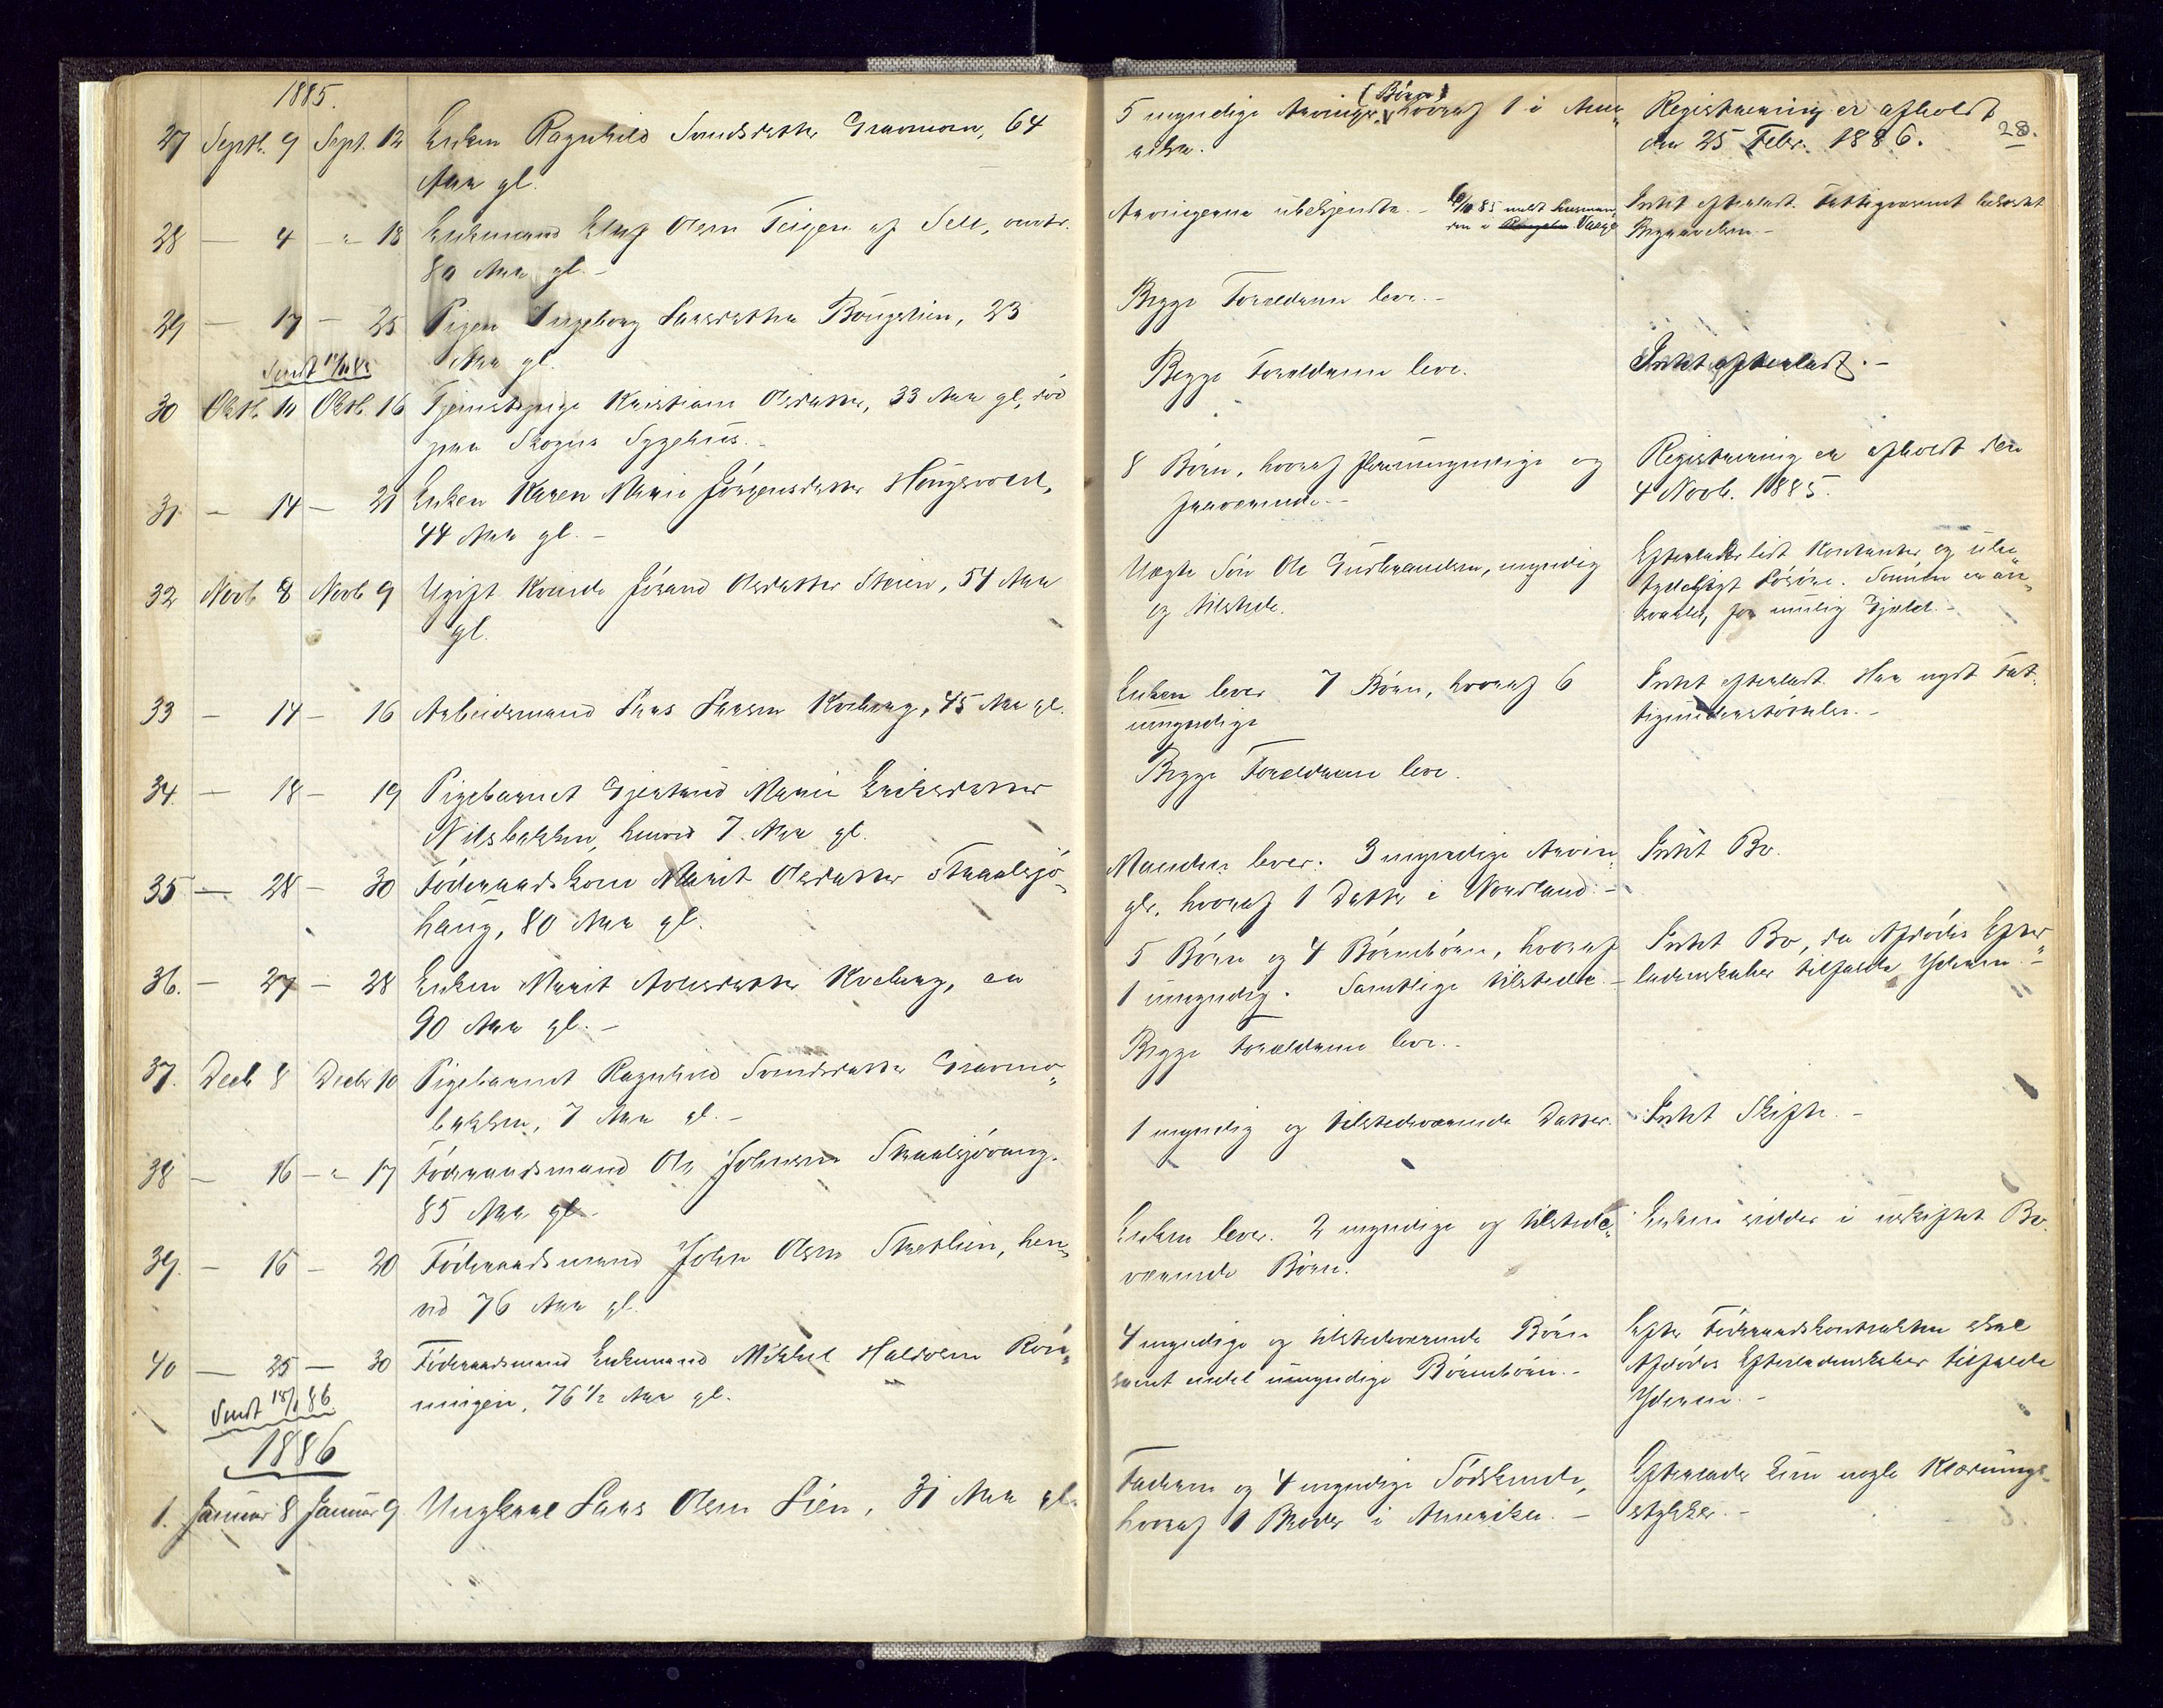 1885.
27 Septb. 9 Sept. 12 Enken Ragnhild Svendsdatter Gravmoen, 64
Aar gl.
5 myndige Arvinger, (Børn) hvoraf 1 i Ame-
rika.
Registrering er afholdt
den 25 Febr. 1886.
28.
28 — 4 — " 18 Enkemand Elling Olsen Teigen af Sell, omtr.
80 Aar gl. –
Arvingerne ubekjendte. –
Intet efterladt. Fattigvæsenet bekostet
Begravelsen. –
29 — 17 — 25 Pigen Ingeborg Larsdatter Bougelien, 23
Aar gl.
Begge Forældrene leve. –
Sendt
30 Oktb. 10 Oktb. 16 Tjenestepige Kristiane Olsdatter, 33 Aar gl, død
paa Skogns Sygehus. –
Begge Forældrene leve.
Intet efterladt. –
31 — 14 — 21 Enken Karen Marie Jørgensdatter Haugsvold,
44 Aar gl. –
8 Børn, hvoraf flere umyndige og
fraværende. –
Registrering er afholdt den
4 Novb. 1885.
32 Novb 8 Novb 9 Ugift Kvinde Jørand Olsdatter Steien, 54 Aar
gl.
Uægte Søn Ole Gudbrandsen, myndig
og tilstede.
Efterlader lidt Kontanter og ube-
tydeligt Løsøre. Sønnen er an-
svarlig for mulig Gjæld. –
33 — 14 — 16 Arbeidsmand Lars Larsen Kveberg, 45 Aar gl.
Enken lever 7 Børn, hvoraf 6
umyndige
Intet efterladt. Har nydt Fat-
tigunderstøttelse. –
34. — 18 — 19 Pigebarnet Gjertrud Marie Eriksdatter
Nilsbakken, henved 7 Aar gl.
Begge Forældrene leve.
35 — 28 — 30 Føderaadskone Marit Olsdatter Straalsjø-
haug, 80 Aar gl.
Manden lever. 3 myndige Arvin-
ger, hvoraf 1 Datter i Nordland. –
Intet Bo.
36. — 27 — 28 Enken Marit Arnesdatter Kveberg, ca
90 Aar gl. –
5 Børn og 4 Børnebørn, hvoraf
1 umyndig. Samtlige tilstede. –
Intet Bo, da Afdødes Efter-
ladenskaber tilfalde Yderen. –
37. Decb 8 Decbr 10 Pigebarnet Ragnhild Svendsdatter Gravmo-
bakken, 7 Aar gl. –
Begge Forældrene leve. –
38 — 16 — " 17 Føderaadsmand Ole Johnsen Straalsjøvang.
85 Aar gl. –
1 myndig og tilstedeværende Datter.
Intet Skifte. –
39. — 16 — 20 Føderaadsmand John Olsen Strætlien, hen-
ved 76 Aar gl.
Enken lever. 2 myndige og tilstede-
værende Børn.
Enken sidder i uskiftet Bo.
40 — 25 — 30 Føderaadsmand Enkemand Mikkel Halvorsen Røn-
ningen, 76 1/2 Aar gl.
4 myndige og tilstedeværende Børn
samt endel umyndige Børnebørn. –
Efter Føderaadskontrakten skal
Afdødes Efterladenskaber tilfalde
Yderen. –
Sendt 18/1 86
1886
1. Januar 8 Januar 9 Ungkarl Lars Olsen Lien, 31 Aar gl.
Faderen og 4 myndige Sødskende,
hvoraf 1 Broder i Amerika. –
Efterlader kun nogle Klædnings-
stykker. –